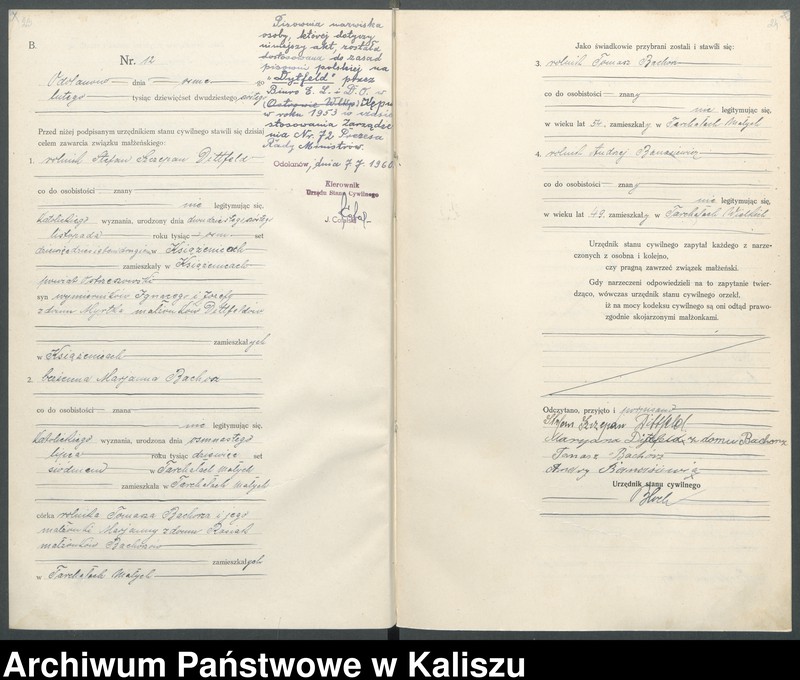 B.
Nr. 12
Odolanów dnia ósmego
lutego tysiąc dziewięćset dwudziestego
Przed niżej podpisanym urzędnikiem stanu cywilnego stawili się dzisiaj
celem zawarcia związku małżeńskiego:
1. rolnik Stefan Szczepan Dittfeld
co do osobistości znany
nie legitymując się,
katolickiego wyznania, urodzony dnia
listopada roku tysiąc ośm set
w Książenicach
zamieszkały w Książenicach
powiat
syn wymierników Ignacego i Józefy
z domu Myrtka małżonków Dittfeldów
zamieszkałych
w Książenicach
2. Marjanna Bachorz
co do osobistości znana
nie legitymując się,
katolickiego wyznania, urodzona dnia osmnastego
lipca roku tysiąc dziewięć set
siódmem w Tarchałach Małych
zamieszkała w Tarchałach Małych
córka rolnika Tomasza Bachorza i jego
małżonki Marjanny z domu
małżonków Bachorzów
zamieszkałych
w Tarchałach Małych
Pisownia nazwiska
osoby, której dotyczy
niniejszy akt, została
dostosowana do zasad
pisowni polskiej na
"Dytfeld" przez
Biuro E. L. i D. O. w
(Ostrowie Wlkp)
w roku 1953 w
stosowania Zarządze
nia Nr. 72 Prezesa
Rady Ministrów.
Odolanów, dnia 7.7.1960.
Kierownik
Urzędu Stanu Cywilnego
24
Jako świadkowie przybrani zostali i stawili się:
3. rolnik Tomasz Bachorz
co do osobistości znany
nie legitymując się,
w wieku lat 54. zamieszkały w Tarchałach Małych
4. rolnik Andrzej Banasiewicz
co do osobistości znany
nie legitymując się,
w wieku lat 49. zamieszkały w Tarchałach Wielkich
Urzędnik stanu cywilnego zapytał każdego z narze-
czonych z osobna i kolejno,
czy pragną zawrzeć związek małżeński.
Gdy narzeczeni odpowiedzieli na to zapytanie twier-
dząco, wówczas urzędnik stanu cywilnego orzekł,
iż na mocy kodeksu cywilnego są oni odtąd prawo-
zgodnie skojarzonymi małżonkami.
Odczytano, przyjęto i podpisano
Stefan Szczepan Dittfeld
Marjanna Dittfeld z domu Bachorz
Tomasz Bachorz
Andrzej Banasiewicz
Urzędnik stanu cywilnego
Archiwum Państwowe w Kaliszu